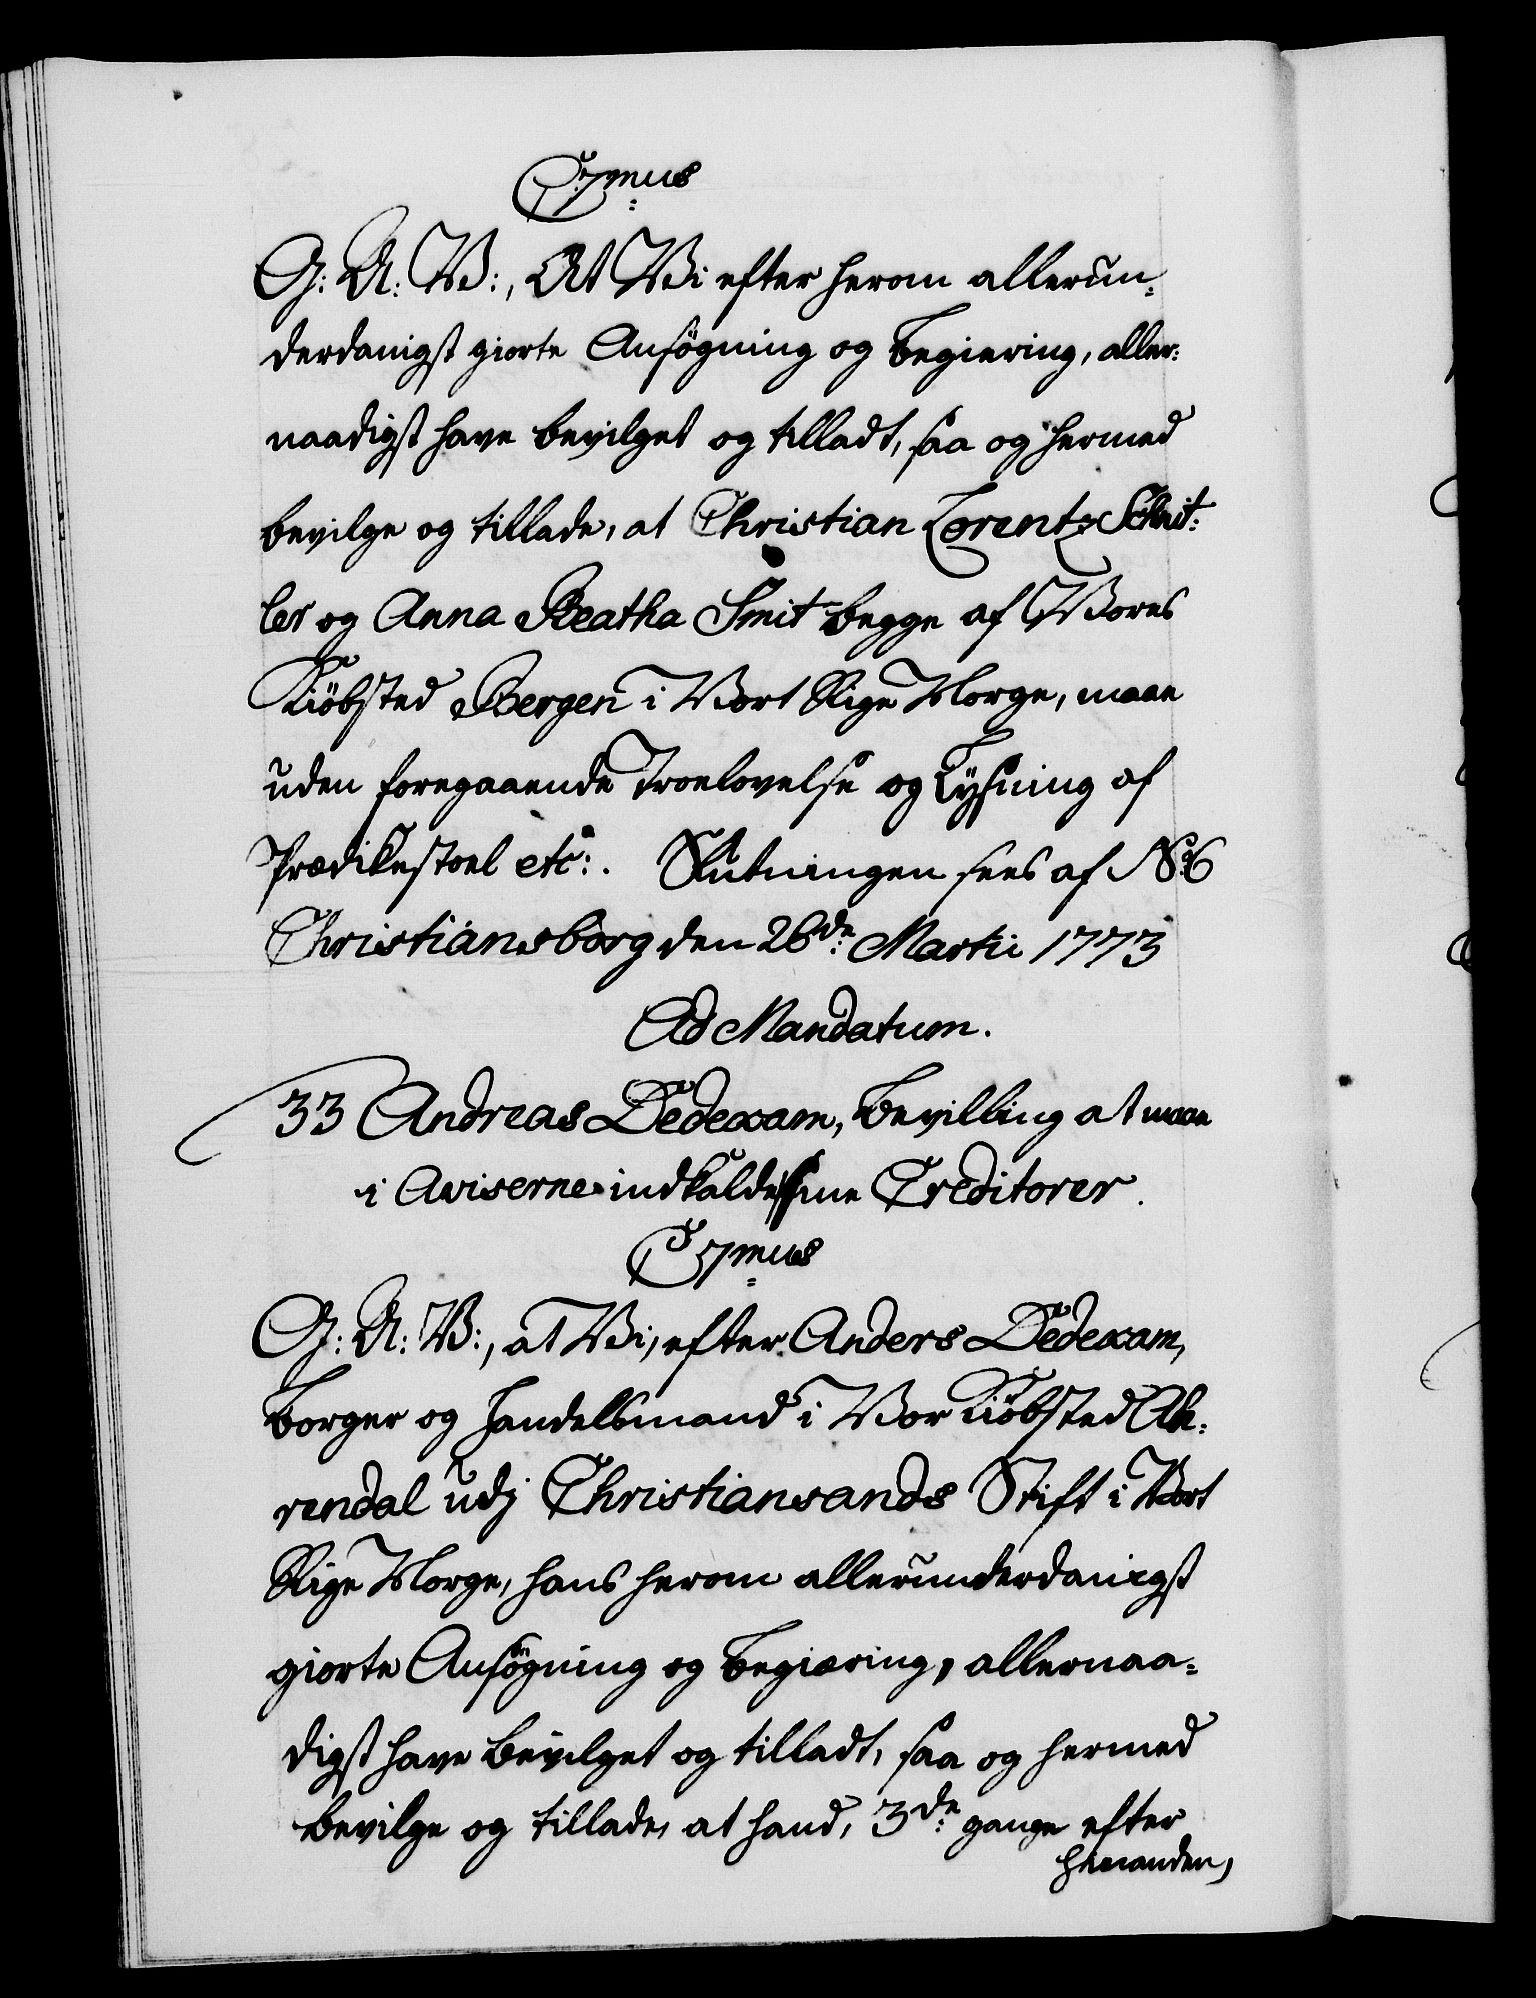 C7mus
G: A: V:, At Vi efter herom allerun-
derdanigst giorte Ansögning og Begiering, aller-
naadigst have bevilget og tilladt, saa og hermed
bevilge og tillade, at Christian Lorentz Scheit-
ler og Anna Beatha Smit begge af Vores
Kiöbsted Bergen i Vort Rige Norge, maae
uden foregaaende Troelovelse og Lysning af
Prædikestoel etc:. Slutningen sees af No 6
Christiansborg den 26de Martii 1773
Ad Mandatum.
33 Andreas Dedexam, Bevilling at maae
i Aviserne indkalde sine Creditorer.
C7mus
G: A: V:, at Vi, efter Anders Dedexam,
Borger og Handelsmand i Vor Kiöbsted Ah-
rendal udj Christiansands Stift i Vort
Rige Norge, hans herom allerunderdanigst
giorte Ansögning og Begiæring, allernaa-
digst have bevilget og tilladt, saa og hermed
bevilge og tillade, at hand, 3de gange efter
hinanden,